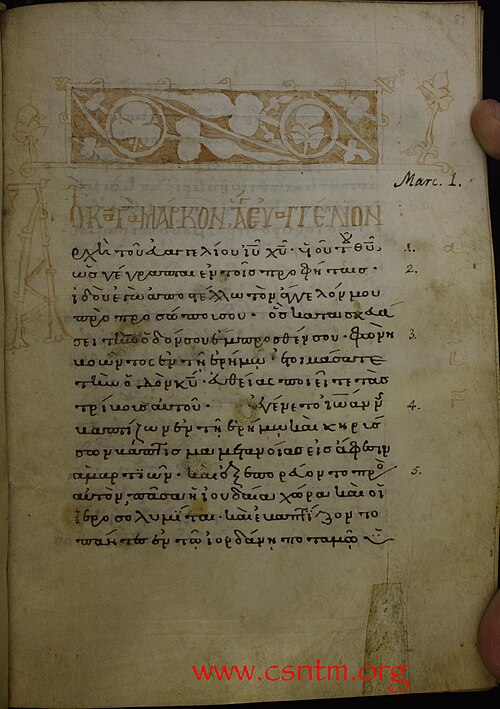 87
Marc. 1.
ΤΟ ΚΑΤΑ ΜΑΡΚΟΝ ΕΥΑΓΓΕΛΙΟΝ
Αρχὴ τοῦ εὐαγγελίου ιῦ χῦ · υἱοῦ τοῦ θῦ 1.
ὡς γέγραπται ἐν τοῖς προφήταις · 2.
ἰδοὺ ἐγὼ ἀποστέλλω τὸν ἄγγελόν μου
πρὸ προσώπου σου · ὃς κατασκευά
σει τὴν ὁδόν σου ἔμπροσθέν σου · φωνὴ 3.
βοῶντος ἐν τῇ ἐρήμω · ἑτοιμάσατε
τὴν ὁδὸν κῦ · εὐθείας ποιεῖτε τὰς
τρίβους αὐτοῦ · ἐγένετο ἰωάννης 4.
βαπτίζων ἐν τῇ ἐρήμω καὶ κηρύσ
σων βάπτισμα μετανοίας εἰς ἄφεσιν
ἁμαρτιῶν · καὶ ἐξεπορεύοντο πρὸς 5.
αὐτὸν πᾶσα ἡ ἰουδαία χώρα καὶ οἱ
ἱεροσολυμῖται · καὶ ἐβαπτίζοντο
πάντες ἐν τῶ ἰορδάνη ποταμῶ
www.csntm.org